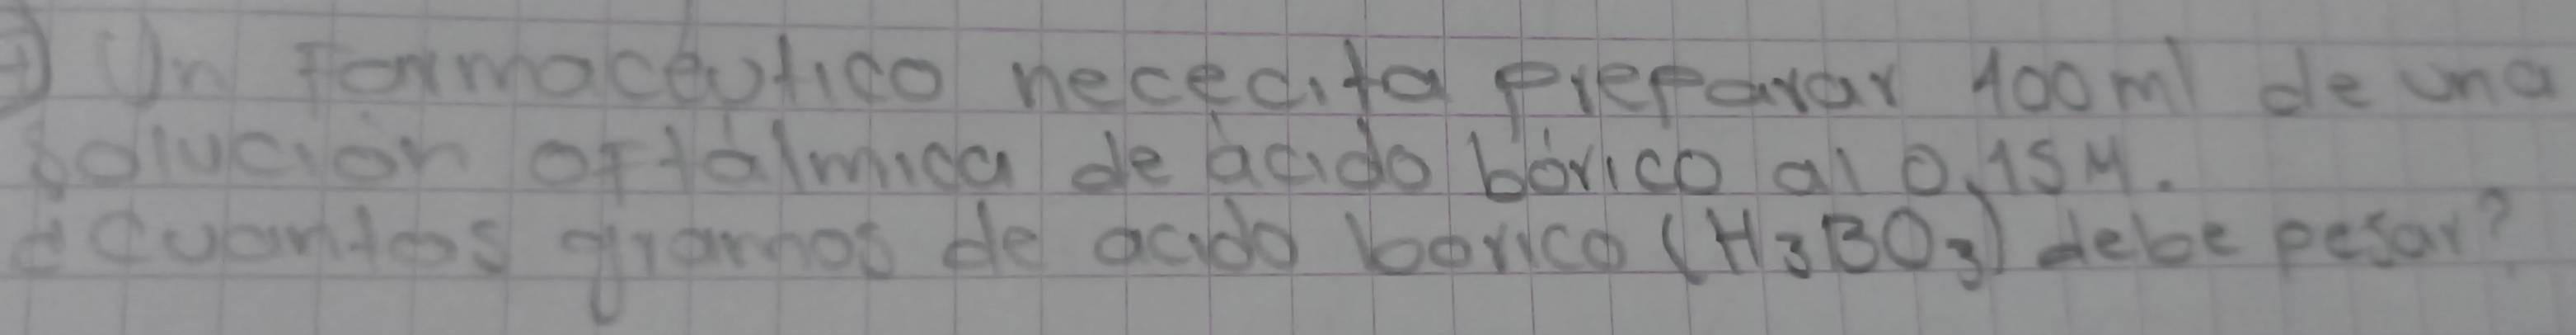 Un Farmacéutico nececita preparar 100ml de una
solución oftálmica de ácido bórico al 0,15M.
¿Cuantos gramos de acido borico (H3BO3) debe pesar?